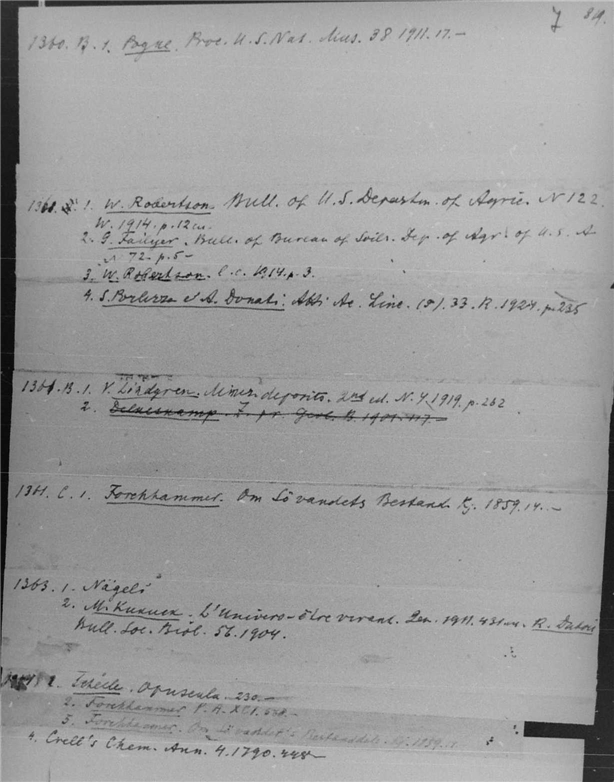 819.
1360. B. 1. Pogue. Proc. U.S. Nat. Mus. 38 1911. 17. –
1361. 1. W. Robertson Bull. of U.S. Departm. of Agric. N 122
W. 1914. p. 12
2. G. Failyer. Bull. of Bureau of Soils. Dep. of Agr. of U.S. A
72. p. 5 –
3. W. Robertson. l. c. 1914. p. 3.
4. S. Borlezza e A. Donati. Atti Ac. Linc. (5). 33. R. 1924. p. 235
1361. B. 1. V. Lindgren. Miner. deposits. 2nd ed. N.Y. 1919. p. 262
2. Delkeskamp. Z. pr. Geol. B. 1901.
1361. C. 1. Forchhammer. Om Sövandets Bestand. Kj. 1859. 14. –
1363. 1. Nägeli
2. M. Kuckuck. L'Univers-être vivant. Gen. 1911. 431 R. Dubois
Bull. Soc. Biol. 56. 1904.
1. Scheele. Opuscula. 230. –
2. Forchhammer P. A. XCI.
3. Forchhammer. Om Sövandets Kj. 1859.
4. Crell's Chem. Ann. 4. 1790.